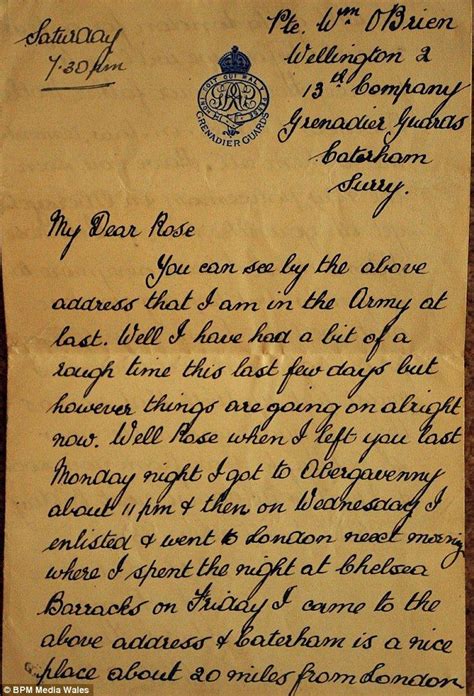 Saturday
7.30pm
Pte. Wm O'Brien
Wellington 2
13th Company
Grenadier Guards
Caterham
Surry.
HONI SOIT QUI MAL Y PENSE
GRENADIER GUARDS
My Dear Rose
You can see by the above
address that I am in the Army at
last. Well I have had a bit of a
rough time this last few days but
however things are going on alright
now. Well Rose when I left you last
Monday night I got to Abergavenny
about 11pm & then on Wednesday I
enlisted & went to London next morning
where I spent the night at Chelsea
Barracks on Friday I came to the
above address & Caterham is a nice
place about 20 miles from London
© BPM Media Wales